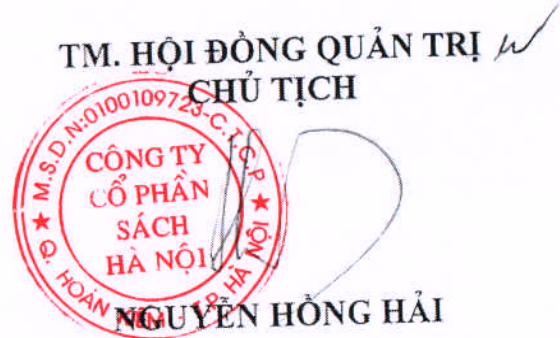 TM. HỘI ĐỒNG QUẢN TRỊ
CHỦ TỊCH
M.S.D.N:0100109723-C.T.C.P
CÔNG TY
CỔ PHẦN
SÁCH
HÀ NỘI
Q. HOÀN KIẾM - T.P. HÀ NỘI
NGUYỄN HỒNG HẢI